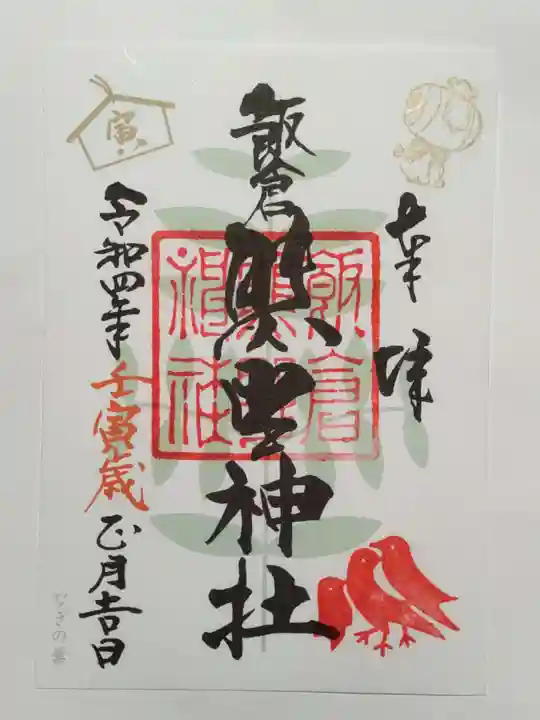 奉拝
飯倉
熊野神社
飯倉
熊野
神社
令和四年
壬寅歳
正月吉日
寅
なぎの葉